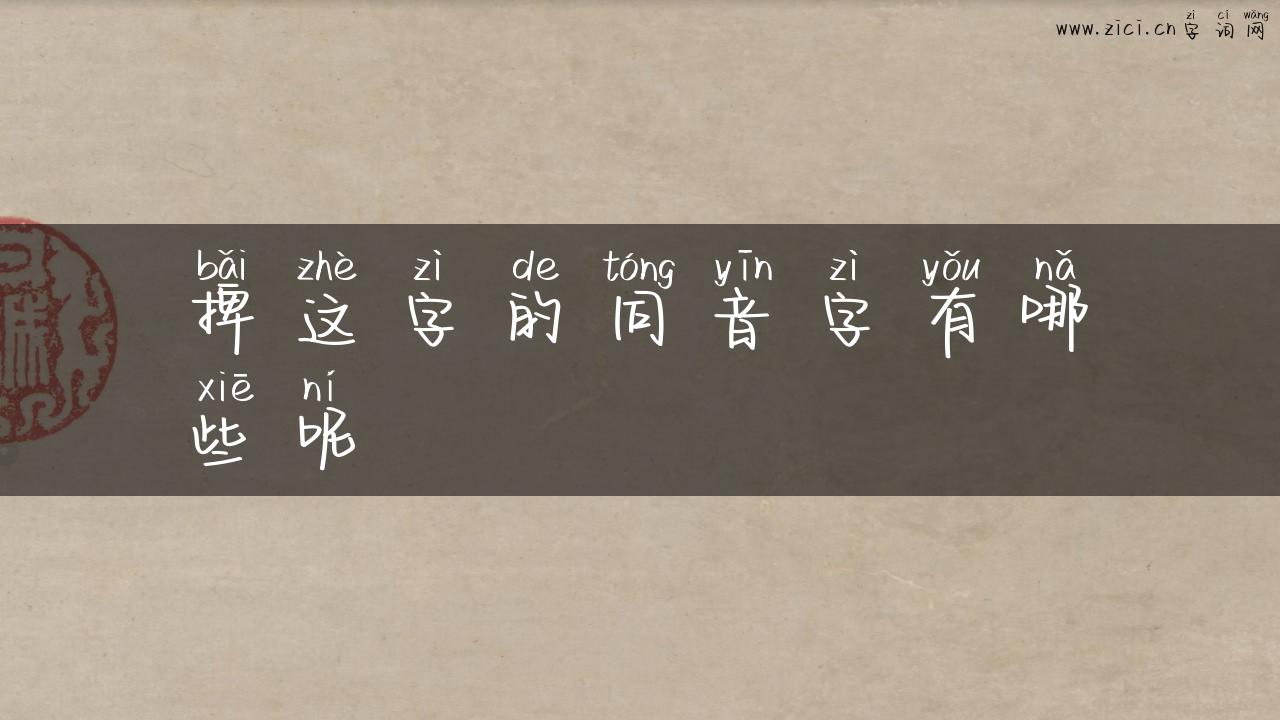 zì cí wǎng
www.zici.cn字词网
bǎi zhè zì de tóng yīn zì yǒu nǎ
捭这字的同音字有哪
xiē ní
些呢